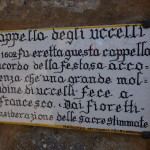 Cappella degli uccelli
1602 fu eretta questa cappella
ricordo della festosa acco
glienza che una grande mol
titudine di uccelli fece a
S. Francesco. Dai Fioretti
considerazione delle sacre stimmate